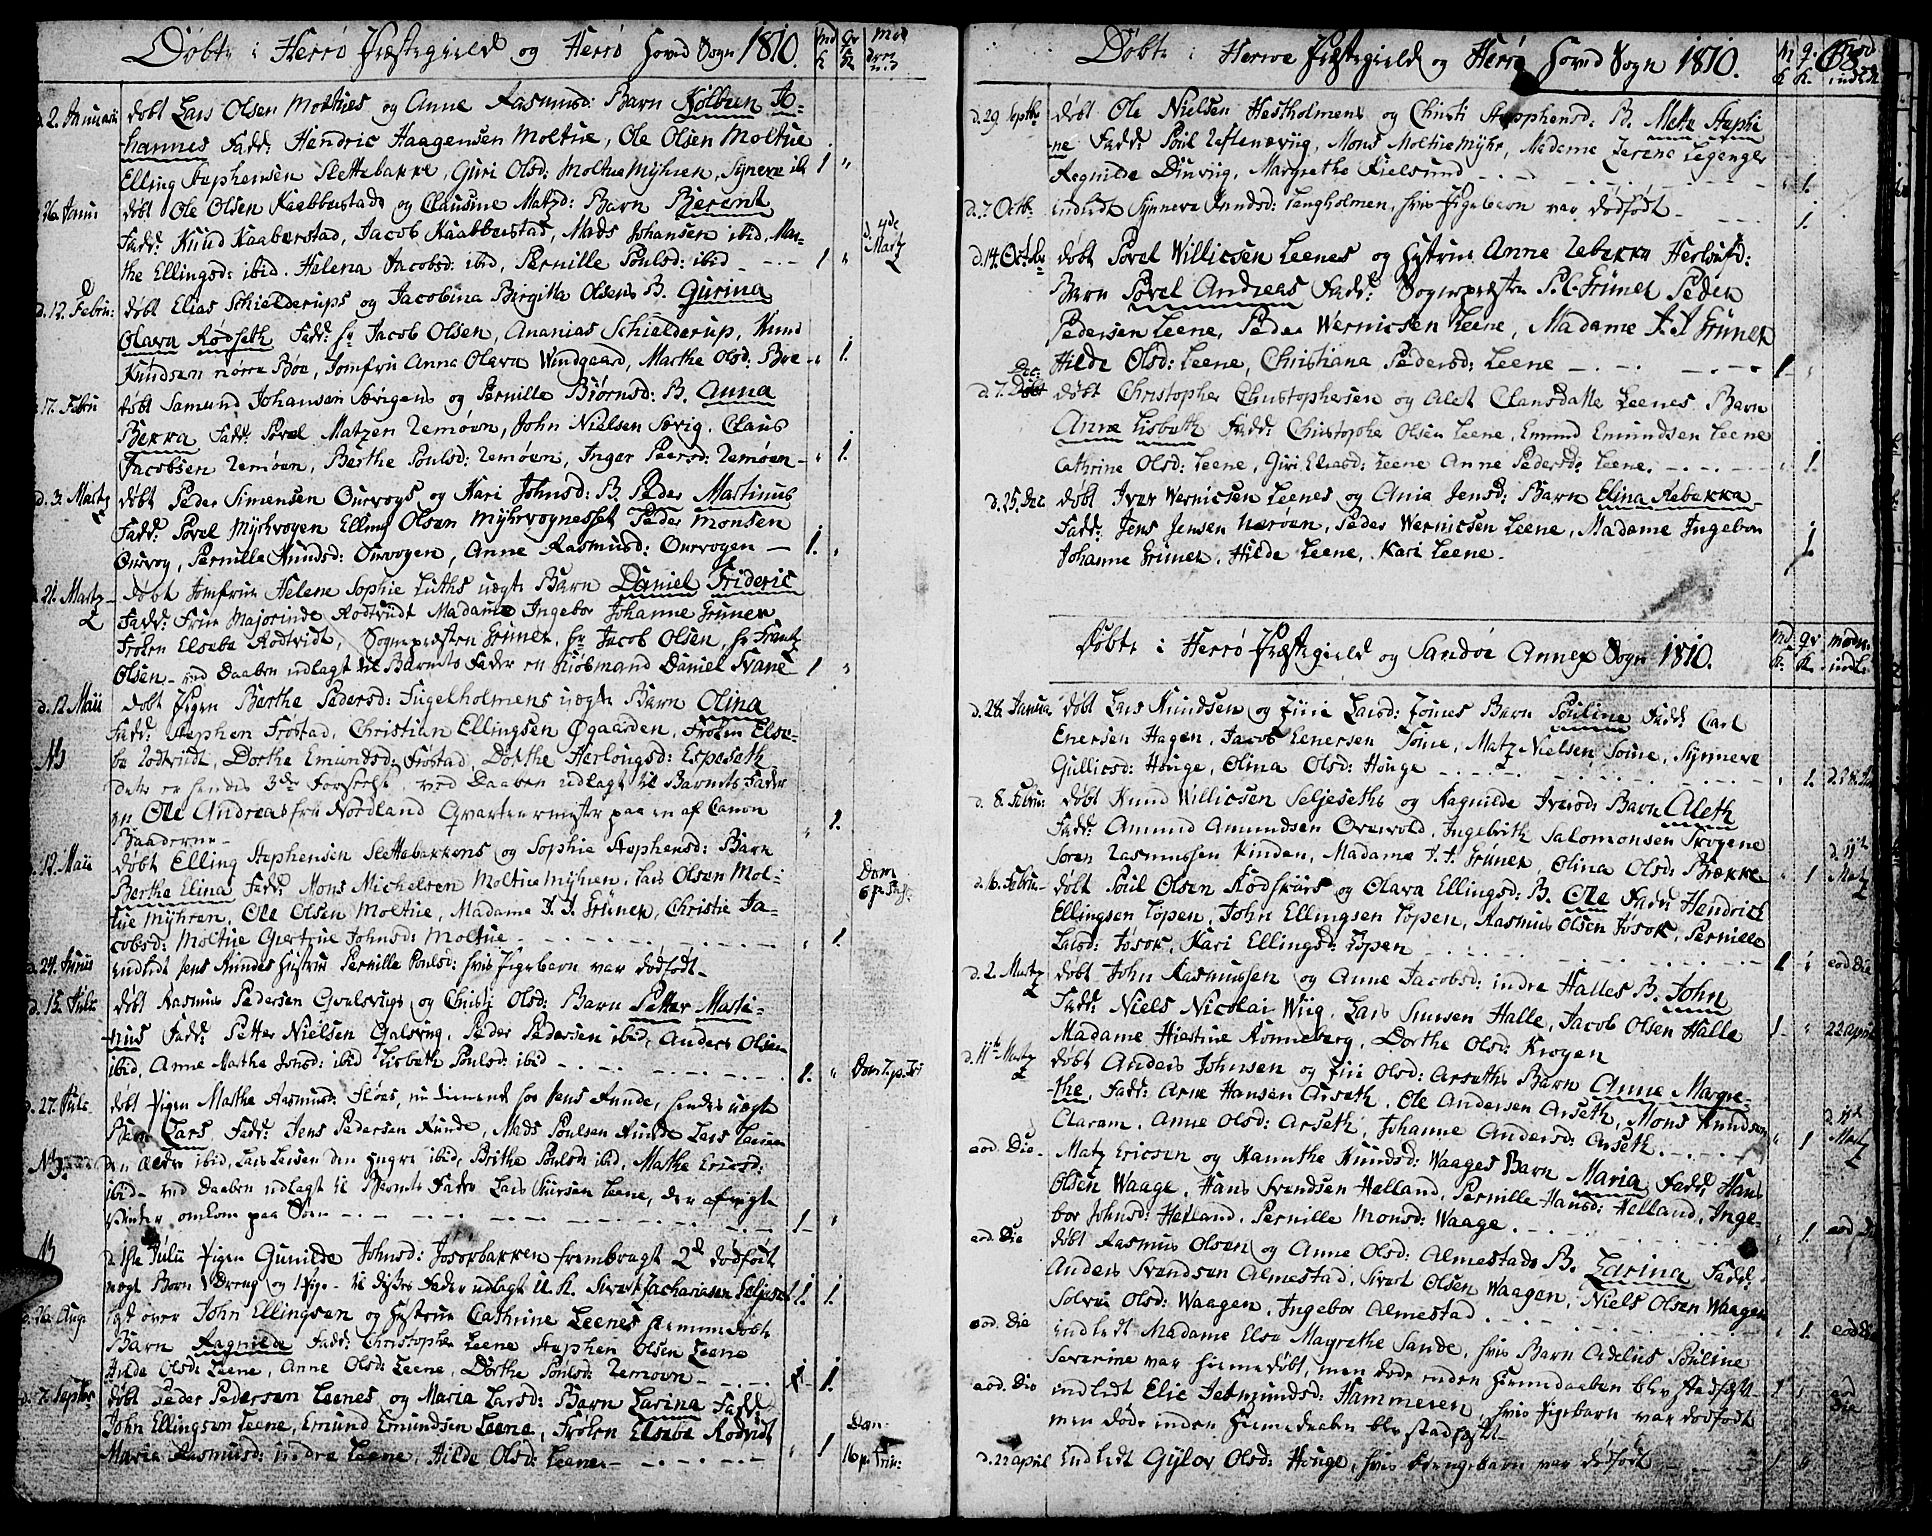 Døbte i Herrø Præstegield og Herrø Hoved Sogn 1810.
d. 2. Januari døbt Lars Olsen Moltues og Anne Rasmusd: Barn Kolbeen Jo-
hannes Fadd: Hendric Haagensen Moltue, Ole Olsen Moltue
Elling Stephensen Slettebakke, Guri Olsd: Moltuemyhren, Syneve ib 1 "
26 Janu døbt Ole Olsen Kaabberstads og Clausine Matzd: Barn Berent
Fadd: Knud Kaaberstad, Jacob Kaabberstad, Mads Johansen ibid, Mar-
the Ellingsd: ibid. Helena Jacobsd: ibid, Pernille Poulsd: ibid 1 " d. 4de Martz
d. 12. Febru: døbt Elias Schielderups og Jacobina Birgitta Olsens B. Gurina
Olava Rødseth Fadd: Hr Jacob Olsen, Ananias Schielderup, Knud
Knudsen nørre Bøe, Jomfru Anna Olava Windgaard, Marthe Olsd. Bøe " 1.
17. Febru døbt Samund Johansen Sævigens og Pernille Biørnsd: B. Anna
Bekka Fadd: Povel Matzen Remøen, John Nielsen Sævig, Claus
Jacobsen Remøen, Berthe Poulsd: Remøen, Inger Peersd: Remøen " 1.
d. 3. Martz døbt Peder Simensen Ourvogs og Kari Johnsd: B. Peder Martinus
Fadd: Povel Myhrvogen Elling Olsen Myhrvognesset Peder Monsen
Ourvog, Pernille Knudsd: Ourvogen, Anne Rasmusd: Ourvogen 1. "
21. Martz døbt Jomfrue Helene Sophie Luths uægte Barn Daniel Frideric
Fadd: Frue Majorinde Rodtvidt Madame Ingebor Johanne Gruner
Frøken Elseba Rodtvidt, Sognepræsten Gruner, Hr Jacob Olsen, Hr Frantz
Olsen - ved Daaben udlagt til Barnets Fader en Kiøbmand Daniel Svane 1 "
d. 12 Maii døbt Pigen Berthe Pedersd: Fugelholmens uægte Barn Olina
Fadd: Stephen Frøstad, Christian Ellingsen Øgaarden, Frøken Else-
NB ba Rodtvidt, Dorthe Emundsd: Frøstad, Dorthe Herlougsd: Espeseth
dette er hendes 3de Forseelse, ved Daaben udlagt til Barnets Fader
en Ole Andreas fra Nordland Qvarteermester paa en af Canon
Baaderne " 1.
12. Maii døbt Elling Stephensen Slettebakkens og Sophie Stephensd: Barn
Berthe Elina Fadd: Mons Michelsen Moltuemyhren, Lars Olsen Mol-
tuemyhren, Ole Olsen Moltue, Madame J. J. Gruner, Christie Ja-
cobsd: Moltue Giertrue Johnsd: Moltue " 1. Dom 6 p.
d. 24. Junii indledt Jens Rundes Hustrue Pernille Poulsd: hvis Pigebarn var dødfødt
d. 15. Julii døbt Rasmus Pedersen Qvalsvigs og Christi Olsd: Barn Petter Marti-
nus Fadd: Petter Nielsen Qvalsvig, Peder Pedersen ibid, Anders Olsen
ibid, Anne Marthe Jonsd: ibid Lisbeth Poulsd: ibid 1. " Dom 7. p. Tri
d. 27. Julii døbt Pigen Marthe Rasmusd: Floes, nu tienende hos Jens Runde, hendes uægte
Barn Lars Fadd: Jens Pedersen Runde, Mads Poulsen Runde Lars Larsen
NB. den ældre ibid, Lars Larsen den yngre ibid, Berthe Poulsd: ibid, Marthe Ericsd:
ibid - ved Daaben udlagt til Barnets Fader Lars Leene, der afvigte
Vinter omkom paa Søen 1. "
NB d. 19de Julii Pigen Gunilde Johnsd: Jøsokbakken frembragt 2de dødfødt
uægt Børn 1 Dreng og 1 Pige - til disses Fader udlagt U. K. Sivert Zachariasen Seljeset 1. 1.
d. 26. Aug. lyst over John Ellingsen og Hustrue Cathrine Leenes hiemmedøbte
Barn Ragnilde Fadd: Christopher Leene Stephen Olsen Leene
Hilde Olsd: Leene, Anne Olsd: Leene, Dorthe Poulsd: Remøen 1.
d. 7. Septbr døbt Peder Pedersen Leenes og Maria Larsd: Barn Larina Fadd:
John Ellingsen Leene, Emund Emundsen Leene, Frøken Elseba Rodvidt
Maria Rasmusd: indre Leene, Hilde Olsd: Leene " 1 Dom. 16 p. Trin:
Døbte i Herrøe Præstegield og Herrø Hoved Sogn 1810. 68.
d. 29 Septbr døbt Ole Nielsen Hestholmens og Christi Stephensd: B. Mete Stephe
ne Fadd: Poul Røftenæviig, Mons Moltuemyhr, Madame Legenger
Ragnilde Dinviig, Margrethe Kielsund " 1.
d. 7. Octb. indledt Synneve Knudsd: Langholmen, hvis Pigebarn var dødfødt 1.
d. 14. Octobr døbt Povel Willicsen Leenes og Hystrue Anne Rebekka Herlougsd:
Barn Povel Andreas Fadd: Sognepræsten P. C. Gruner Peder
Pedersen Leene, Peder Wernicsen Leene, Madame J. J. Gruner
Hilde Olsd: Leene, Christiana Pedersd: Leene 1 "
d. 7. Dec: døbt Christopher Christophersen og Alet Clausdatte Leenes Barn
Anne Lisbeth Fadd: Christopher Olsen Leene, Emund Emundsen Leene
Cathrine Olsd: Leene, Giri Elsasd: Leene Anne Pedersd: Leene. " 1.
d. 25. Dec døbt Iver Wernicsen Leenes og Ania Jensd: Barn Elina Rebekka
Fadd: Jens Jensen Nærøen, Peder Wernicsen Leene, Madame Ingebor
Johanne Gruner, Hilde Leene, Kari Leene. 1
Døbte i Herrø Præstegield og Sandøe Annex Sogn 1810.
d. 28. Janua døbt Lars Knudsen og Ziri Larsd: Somes Barn Pouline Fadd Carl
Enersen Hagen, Jacob Eenersen Some, Matz Nielsen Some, Synneve
Gullicsd: Houge, Olina Olsd: Houge " 1. d. 28 Ja
d. 8. Febru: døbt Knud Willicsen Seljeseths og Ragnilde Iversd: Barn Aleth
Fadd: Amund Amundsen Orewold, Ingebrith Salomonsen Skogene
Søren Rasmussen Kinden, Madame J. J. Grüner, Olina Olsd: Brække " 1 d. 11te Martz
d. 16. Febru døbt Poul Olsen Rødskiærs og Olava Ellingsd: B. Ole Fadd: Hendrick
Ellingsen Lopen, John Ellingsen Lopen, Rasmus Olsen Jøsok, Pernille
Larsd: Jøsok, Kari Ellingsd: Lopen 1 " eod Die
d. 2. Martz døbt John Rasmussen og Anne Jacobsd: indre Halles B. John
Fadd: Niels Nicolai Wiig, Lars Halle, Jacob Olsen Halle
Madame Hiestine Ronneberg, Dorthe Olsd: Krogen 1. " 22 april
d. 11te Martz døbt Anders Johnsen og Ziri Olsd: Arseths Barn Anne Margre-
the, Fadd: Arne Hansen Arseth, Ole Andersen Arseth, Mons Knudsen
Claram, Anne Olsd: Arseth, Johanne Andersd: Arseth. " 1 d. 11te Martz
eod. Die Matz Ericsen og Hannthe Knudsd: Waages Barn Maria Fadd: Hans
Olsen Waage, Hans Svendsen Helland, Pernille Hansd: Helland, Inge-
bor Johnsd: Helland, Pernille Monsd: Waage. " 1. eod Die
eod. Die døbt Rasmus Olsen og Anne Olsd: Almestads B. Zarina Fadd:
Anders Svendsen Almestad, Sivert Olsen Waagen, Niels Olsen Waagen
Solvue Olsd: Waagen, Ingebor Almestad " 1. eod Die
eod. Die indledt Madame Elsa Magrethe Sande, hvis Barn Adelus Pouline
Severine var hiemmedøbt, men døde inden hiemmedaaben blev stadfæst
eod. Die indledt Elie Jetmundsd: Hammeren, hvis Pigebarn var dødfødt eod Die
men døde inden Hiemmedaaben blev stadfæstet
d. 22 april indledt Gylov Olsd: Houge, hvis Drengebarn var dødfødt